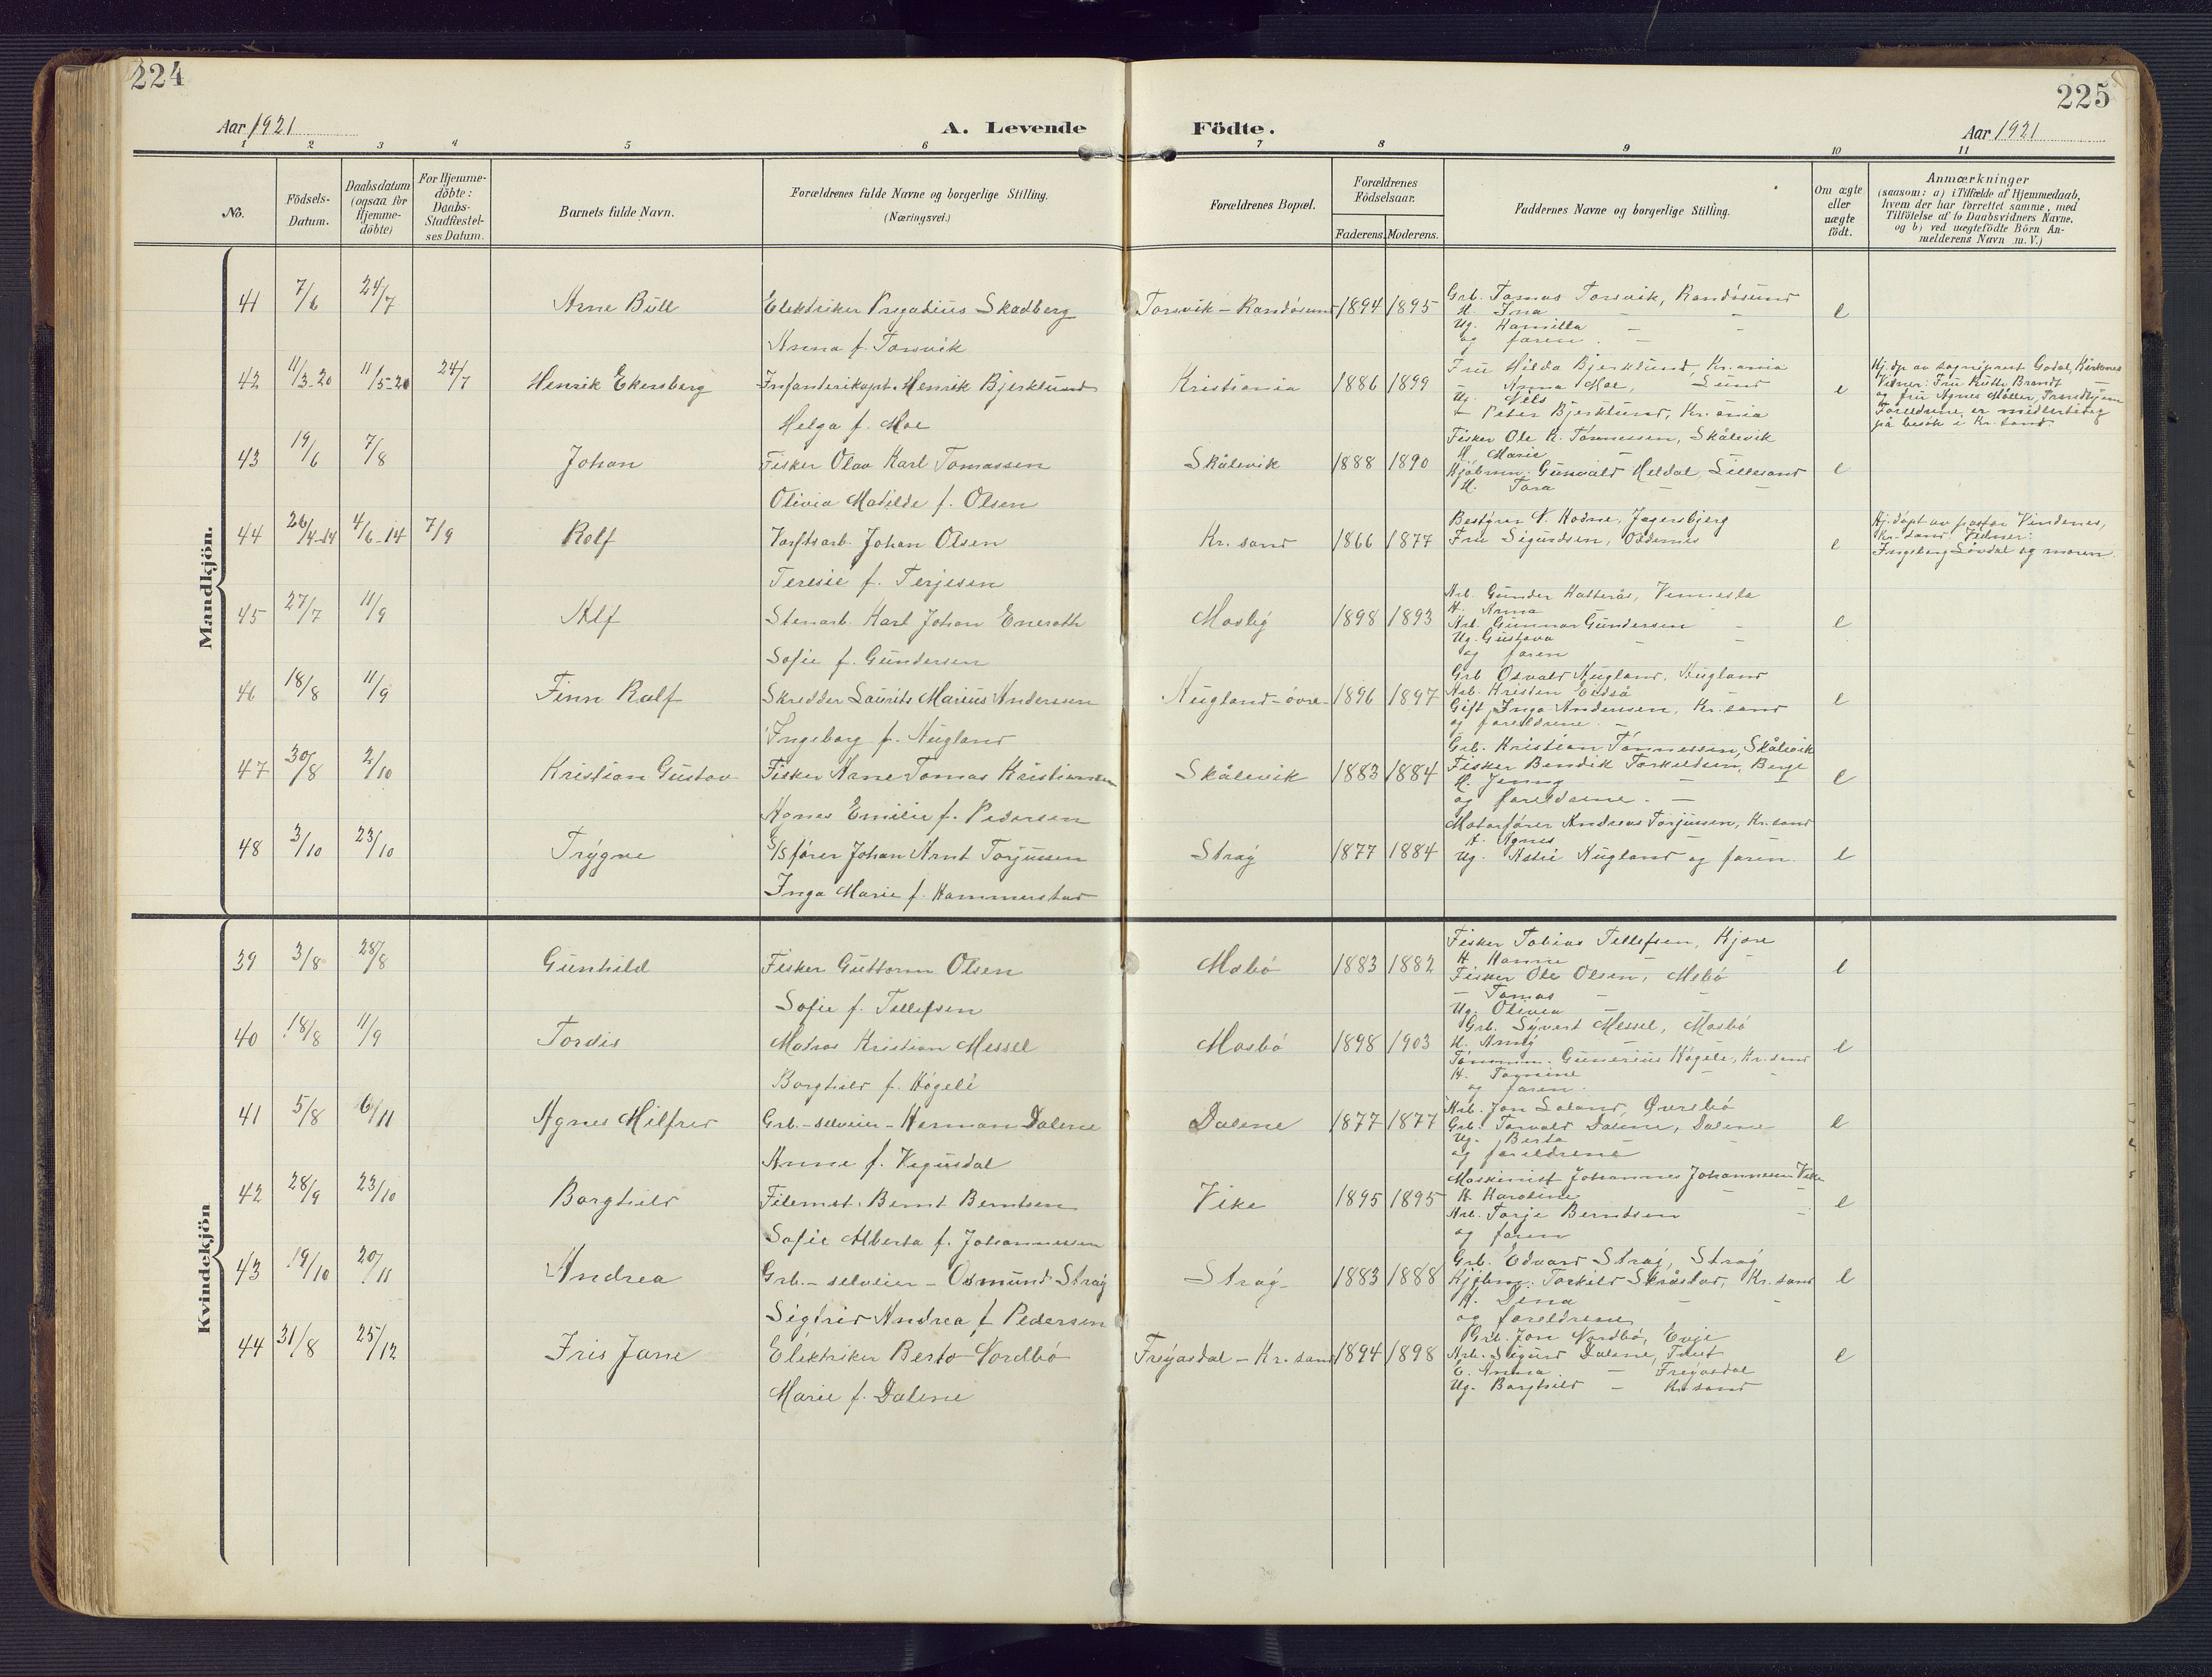 224
225
Aar 1921
A. Levende Födte.
Aar 1921
1 2 3 4 5 6 7 8 9 10 11
No.
Födsels-Datum.
Daabsdatum (ogsaa for Hjemme-döbte)
For Hjemme-döbte: Daabs-Stadfæstel-ses Datum.
Barnets fulde Navn.
Forældrenes fulde Navne og borgerlige Stilling. (Næringsvei.)
Forældrenes Bopæl.
Forældrenes Födselsaar.
Faderens. Moderens.
Faddernes Navne og borgerlige Stilling.
Om ægte eller uægte födt.
Anmærkninger
(saasom: a) i Tilfælde af Hjemmedaab, hvem der har forrettet samme, med Tilföielse af to Daabsvidners Navne, og b) ved uægtefödte Börn An-melderens Navn m. V.)
Mandkjön.
41 7/6 24/7 Arne Bull Elektriker Pregadius Skadberg Torsvik - Randösund 1894 1895 Grb. Tomas Torsvik, Randösund e
Anna f. Torsvik
H. Ina - -
Ug. Kamilla - -
og faren.
42 11/3-20 11/5-20 24/7 Henrik Ekersberg Infanterikapt. Henrik Bjerklund Kristiania 1886 1899 Fru Hilda Bjerklund, Kr.ania e
Helga f. Moe
- Anna Moe, Lund
Ug. Nils
- Peter Bjerklund, Kr.ania
Hj.dp av sogneprest Godal, Kirkenes
Vidner: Fru Ruth Brandt -
og fru Agnes Möller, Trondhjem
Foreldrene er midlertidig
på besök i Kr.sand.
43 19/6 7/8 Johan Fisker Olav Karl Tomassen Skålevik 1888 1890 Fisker Ole K. Tönnessen, Skålevik e
Olivia Matilde f. Olsen
H. Marie -
Kjöbm. Gunvald Heldal, Lillesand
H. Tora - -
44 26/4-14 4/6-14 7/9 Rolf Verftsarb. Johan Olsen Kr.sand 1866 1877 Bestyrer N. Hodne, Jegersbjerg e
Teresie f. Terjesen
Fru Sigurdsen, Oddernes
Hj.döpt av pastor Vindenes,
Kr.sand Vidner:
Ingeborg Lövdal og moren.
45 27/7 11/9 Alf Stenarb. Karl Johan Eneroth Mosby 1898 1893 Arb. Gunder Hatterås, Vennesla e
Sofie f. Gundersen
H. Anna
Arb. Gunnar Gundersen -
Ug. Gustava -
og faren
46 18/8 11/9 Finn Ralf Skredder Laurits Marius Andersen Augland - övre - 1896 1897 Grb Osvald Augland, Augland e
Ingeborg f. Augland
Arb. Kristen Eidså
Gift Inga Andersen, Kr.sand
og foreldrene. -
47 30/8 2/10 Kristian Gustav Fisker Arne Tomas Kristiansen Skålevik 1883 1884 Grb. Kristian Tönnessen, Skålevik e
Agnes Emilie f. Pedersen
Fisker Bendik Torkeldsen, Berge
H. Jenny - -
og foreldrene. -
48 3/10 23/10 Trygve S/S förer Johan Arnt Torjussen Stray 1877 1884 Motorförer Andreas Torjussen, Kr.sand e
Inga Marie f. Hammerstad
H. Agnes -
Ug. Astri Augland og faren.
Kvindekjön
39 3/8 28/8 Gunhild Fisker Guttorm Olsen Mebö 1883 1882 Fisker Tobias Tellefsen, Kjöre e
Sofie f. Tellefsen
H. Hanne - -
Fisker Ole Olsen, Mebö
- Tomas - -
Ug. Olivia
40 18/8 11/9 Tordis Matros Kristian Messel Mosbö 1898 1903 Grb. Syvert Messel, Mosbö e
Borghild f. Högeli
H. Amy -
Tömmm. Gunerius Högeli, Kr.sand
H. Tomine - -
og faren.
41 5/8 6/11 Agnes Milfrid Grb.-selveier - Herman Dalene Dalene 1877 1877 Arb. Jon Loland, Øvrebö e
Anne f. Vegusdal
Grb. Torvald Dalene, Dalene
Ug. Berta - -
og foreldrene
42 28/9 23/10 Borghild Filemst. Bernt Berntsen Vike 1895 1895 Maskinist Johannes Johannessen Vike e
Sofie Alberta f. Johannessen
H. Karoline - -
Arb. Torje Berndsen -
og faren
43 19/10 20/11 Andrea Grb.- selveier - Osmund Stray Stray 1883 1888 Grb. Edvard Stray, Stray e
Sigfrid Andrea f. Pedersen
Kjöbm. Torkild Skråstad, Kr.sand
H. Dina - -
og foreldrene
44 31/8 25/12 Iris Jane Elektriker Berto Nordbö Fregasdal - Kr.sand 1894 1898 Grb. Jon Nordbö, Evje e
Marie f. Dalene
Arb. Sigurd Dalene, Tveit
E. Anna - Fregasdal
Ug. Borghild - Kr.sand